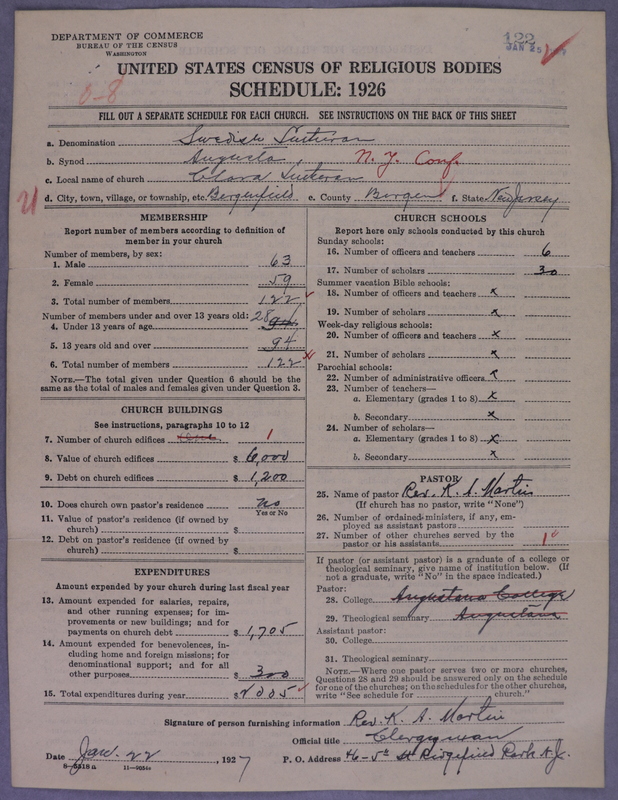 DEPARTMENT OF COMMERCE
BUREAU OF THE CENSUS
WASHINGTON
122
JAN 25
UNITED STATES CENSUS OF RELIGIOUS BODIES
SCHEDULE: 1926
FILL OUT A SEPARATE SCHEDULE FOR EACH CHURCH. SEE INSTRUCTIONS ON THE BACK OF THIS SHEET
a. Denomination Swedish Lutheran
b. Synod Augusta, N. Y. Conf.
c. Local name of church Clara Lutheran
d. City, town, village, or township, etc. Bergenfield e. County Bergen f. State New Jersey
MEMBERSHIP
Report number of members according to definition of
member in your church
Number of members, by sex:
1. Male 63
2. Female 59
3. Total number of members 122
Number of members under and over 13 years old: 28
4. Under 13 years of age 94
5. 13 years old and over 94
6. Total number of members 122
NOTE.—The total given under Question 6 should be
the same as the total of males and females given under Question 3.
CHURCH BUILDINGS
See instructions, paragraphs 10 to 12
7. Number of church edifices 1
8. Value of church edifices $ 6,000
9. Debt on church edifices $ 1,200
10. Does church own pastor's residence no
Yes or No
11. Value of pastor's residence (if owned by
church) $
12. Debt on pastor's residence (if owned by
church) $
EXPENDITURES
Amount expended by your church during last fiscal year
13. Amount expended for salaries, repairs,
and other running expenses; for im-
provements or new buildings; and for
payments on church debt $ 1,705
14. Amount expended for benevolences, in-
cluding home and foreign missions; for
denominational support; and for all
other purposes $ 300
15. Total expenditures during year $ 2005
CHURCH SCHOOLS
Report here only schools conducted by this church
Sunday schools:
16. Number of officers and teachers 6
17. Number of scholars 30
Summer vacation Bible schools:
18. Number of officers and teachers x
19. Number of scholars x
Week-day religious schools:
20. Number of officers and teachers x
21. Number of scholars x
Parochial schools:
22. Number of administrative officers x
23. Number of teachers—
a. Elementary (grades 1 to 8) x
b. Secondary x
24. Number of scholars—
a. Elementary (grades 1 to 8) x
b. Secondary x
PASTOR
25. Name of pastor Rev. K. A. Martin
(If church has no pastor, write "None")
26. Number of ordained ministers, if any, em-
ployed as assistant pastors
27. Number of other churches served by the
pastor or his assistants 1
If pastor (or assistant pastor) is a graduate of a college or
theological seminary, give name of institution below. (If
not a graduate, write "No" in the space indicated.)
Pastor:
28. College Augustana College
29. Theological seminary Augustana
Assistant pastor:
30. College
31. Theological seminary
NOTE.—Where one pastor serves two or more churches,
Questions 28 and 29 should be answered only on the schedule
for one of the churches; on the schedules for the other churches,
write "See schedule for church."
Signature of person furnishing information Rev. K. A. Martin
Official title Clergyman
Date Jan. 22, 1927 P. O. Address 46-5th St Ridgefield Park N.J.
8-5518 a 11-9554